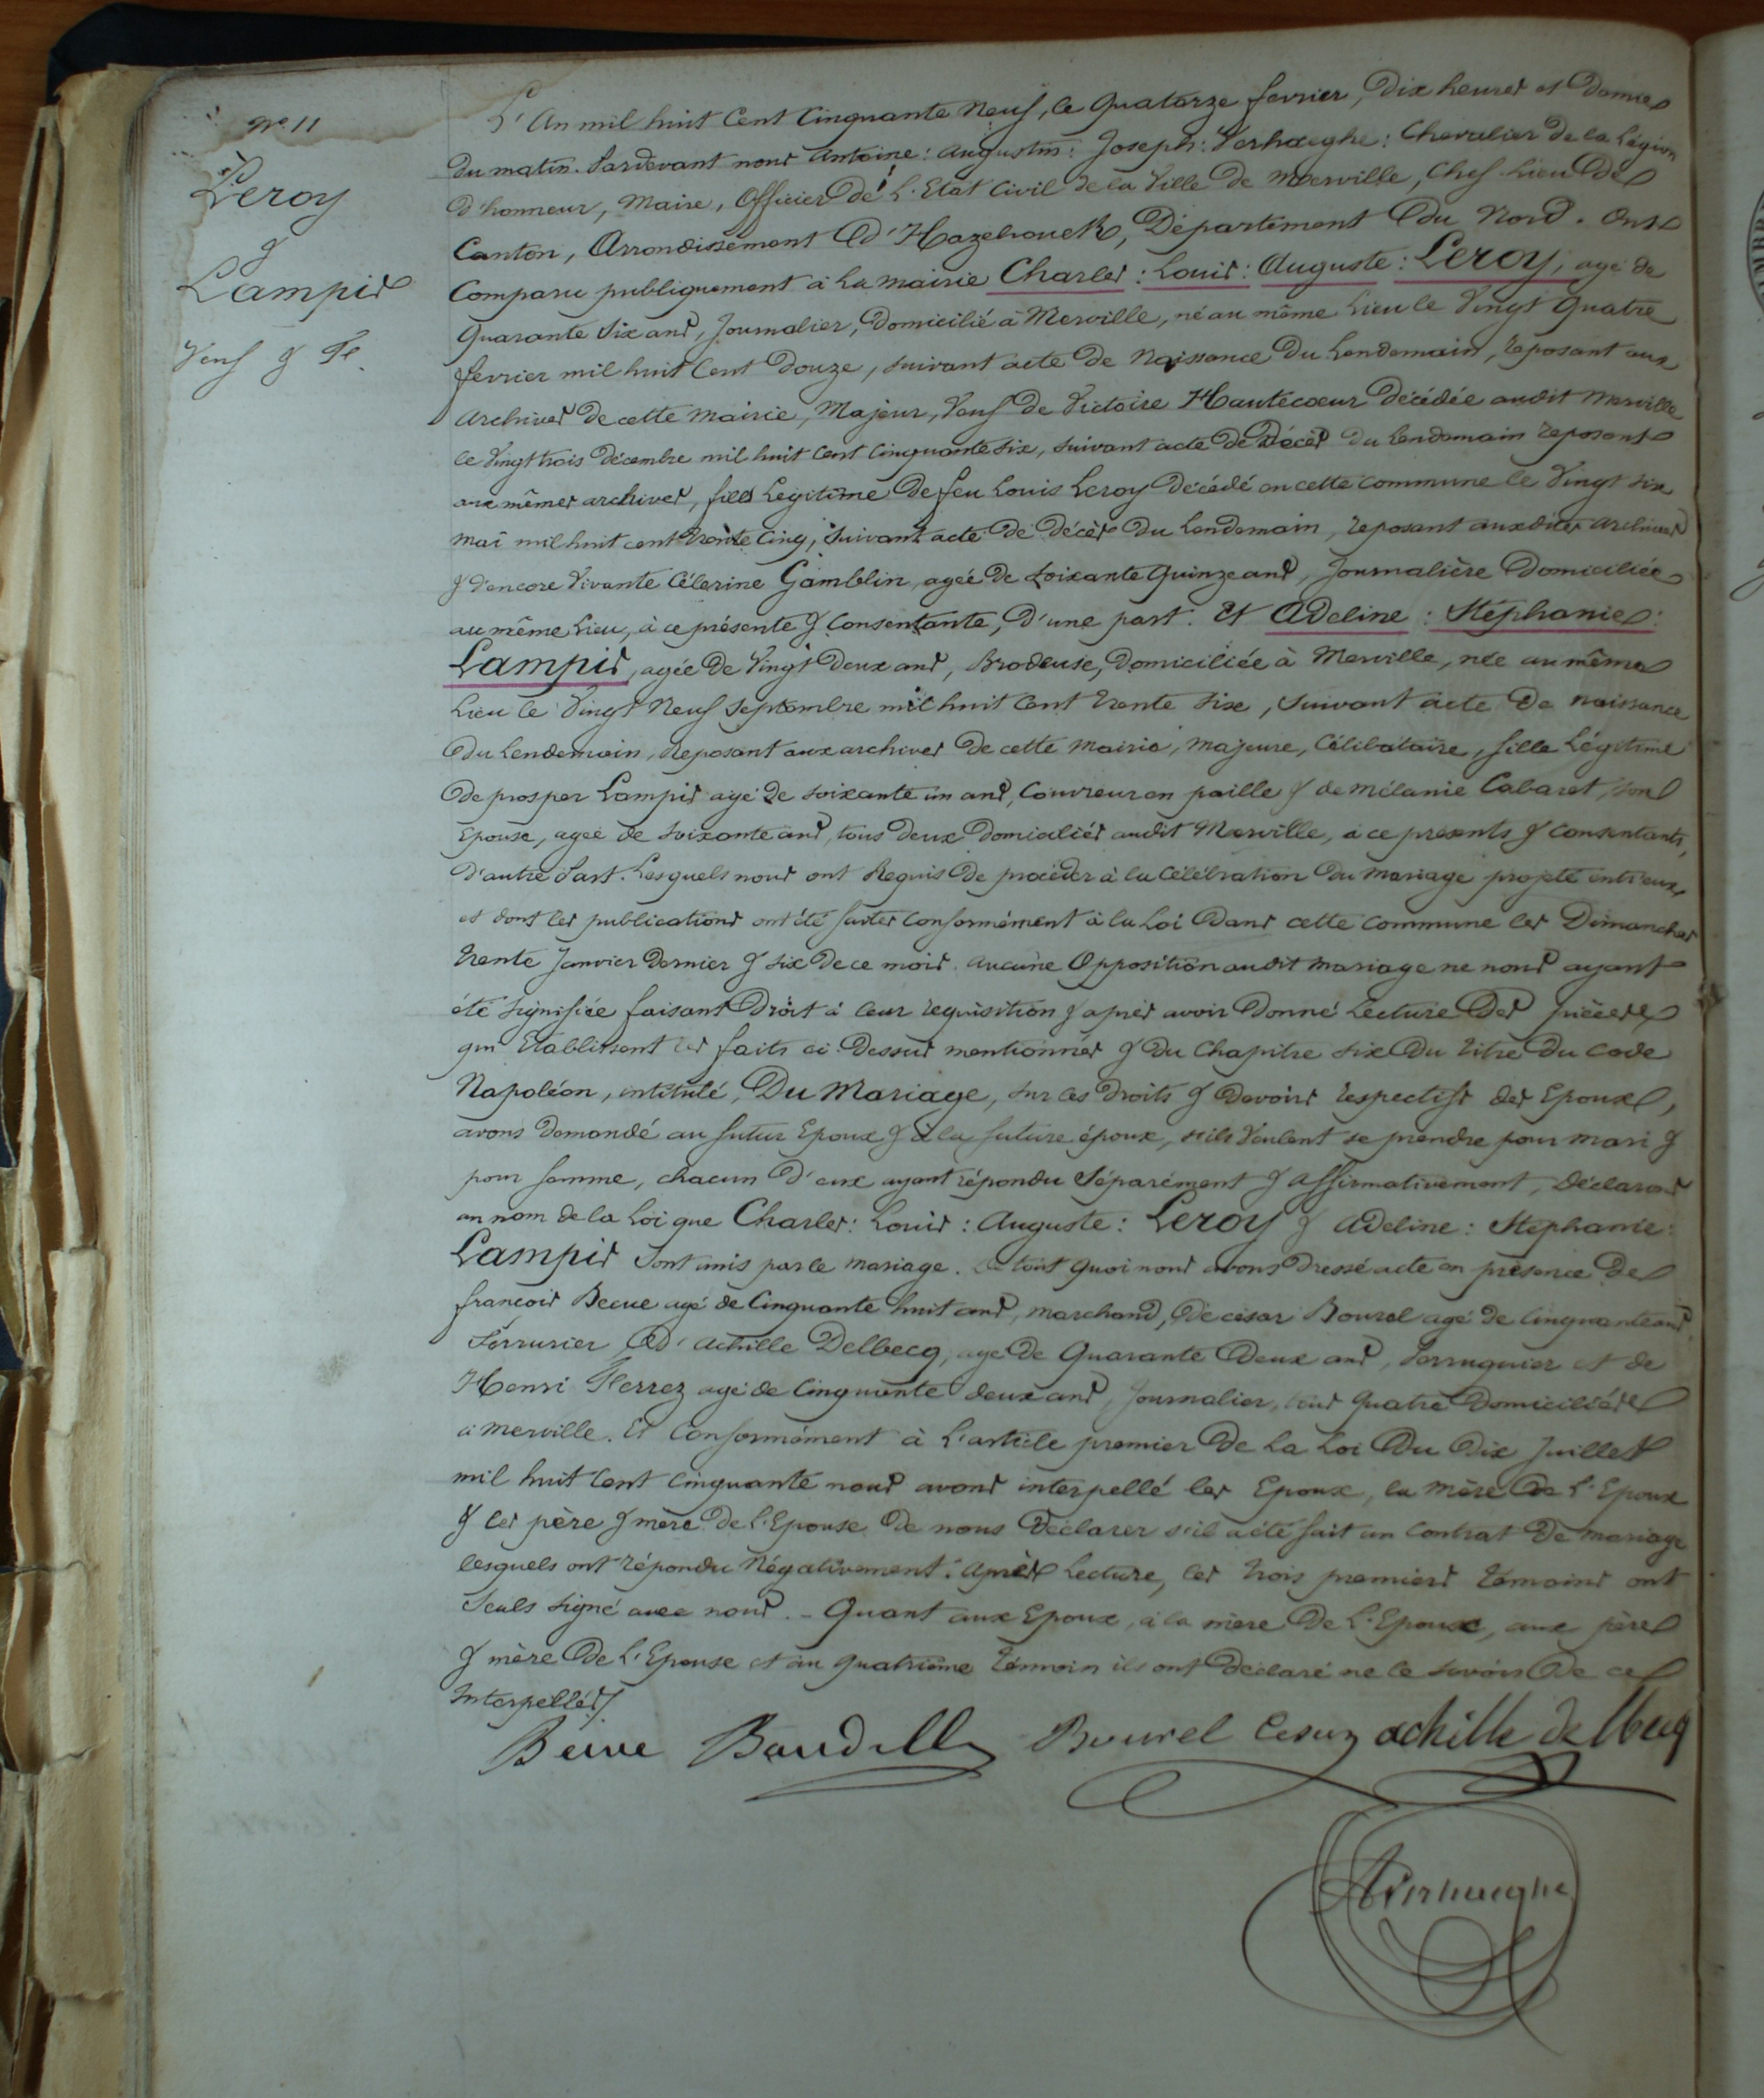 N° 11
Leroy
&
Lampis
Veuf & Fe.
L'An mil huit Cent Cinquante Neuf, le Quatorze fevrier, Dix heures et Demie
du matin. Pardevant nous Antoine: Augustin: Joseph: Verhaeghe: Chevalier de la Légion
d'honneur, Maire, Officier de L'Etat Civil de la Ville de Merville, Chef-Lieu de
Canton, Arrondissement d'Hazebrouck, Département du Nord. Ont
Comparu publiquement à la mairie Charles: Louis: Auguste: Leroy, agé de
Quarante Six ans, Journalier, Domicilié à Merville, né au même Lieu le Vingt Quatre
fevrier mil huit Cent Douze, suivant acte de Naissance du Lendemain, reposant aux
archives de cette mairie, Majeur, Veuf de Victoire Hautecoeur Décédée audit Merville
le Vingt trois Décembre mil huit Cent Cinquante six, suivant acte de Décès du Lendemain reposant
aux mêmes archives, fils Légitime de feu Louis Leroy décédé en cette Commune le Vingt six
mai mil huit cent trente Cinq, suivant acte de décès du Lendemain, reposant auxdites archives
& d'encore Vivante Célerine Gamblin, agée de soixante Quinze ans, Journalière Domiciliée
au même Lieu, à ce présente & Consentante, D'une part. Et Adeline: Stéphanie:
Lampis, agée de Vingt Deux ans, Brodeuse, Domiciliée à Merville, née au même
Lieu le Vingt Neuf Septembre mil huit Cent trente Six, suivant acte de naissance
du Lendemain, Reposant aux archives de cette mairie, majeure, Célibataire, fille Légitime
de prosper Lampis agé de soixante un ans, Couvreur en paille & de mélanie Cabaret, son
Epouse, agée de soixante ans, tous deux Domiciliés audit Merville, à ce présents & Consentants,
D'autre Part. Lesquels nous ont Requis de procéder à la Célébration du mariage projeté entr'eux
et dont les publications ont été faites conformément à la Loi dans cette commune les Dimanches
trente Janvier Dernier & six de ce mois. aucune Opposition audit mariage ne nous ayant
été signifiée faisant Droit à leur requisition & après avoir Donné Lecture Des pièces
qui Etablissent les faits ci-Dessus mentionnés & Du Chapitre six Du titre Du Code
Napoléon, intitulé, Du Mariage, sur les Droits & Devoirs respectifs des Epoux,
avons Demandé au futur Epoux & à la future époux, s'ils Veulent se prendre pour mari &
pour femme, chacun d'eux ayant répondu Séparément & affirmativement, Déclarons
au nom de la Loi que Charles: Louis: Auguste: Leroy & Adeline: Stephanie:
Lampis Sont unis par le mariage. De tout Quoi nous avons Dressé acte en présence De
françois Becue agé de Cinquante huit ans, marchand, De césar Bourel agé de Cinquante ans
Serrurier D'achille Delbecq, agé De Quarante Deux ans, Perruquier et de
Henri Ferrez agé de Cinquante deux ans, Journalier, tous Quatre Domiciliés
à merville. Et Conformément à L'article premier De la Loi Du Dix Juillet
mil huit Cent Cinquante nous avons interpellé les Epoux, la mère De L'Epoux
& les père & mère de L'Epouse De nous Déclarer s'il a été fait un Contrat De mariage
lesquels ont répondu Négativement. Après Lecture, les trois premiers témoins ont
Seuls signé avec nous. - Quant aux Epoux, à la mère De L'Epoux, aux père
& mère De L'Epouse et au Quatrième témoin ils ont Déclaré ne le savoir De ce
Interpellés/.
Becue Bourel Cesar achille delbecq
AVerhaeghe